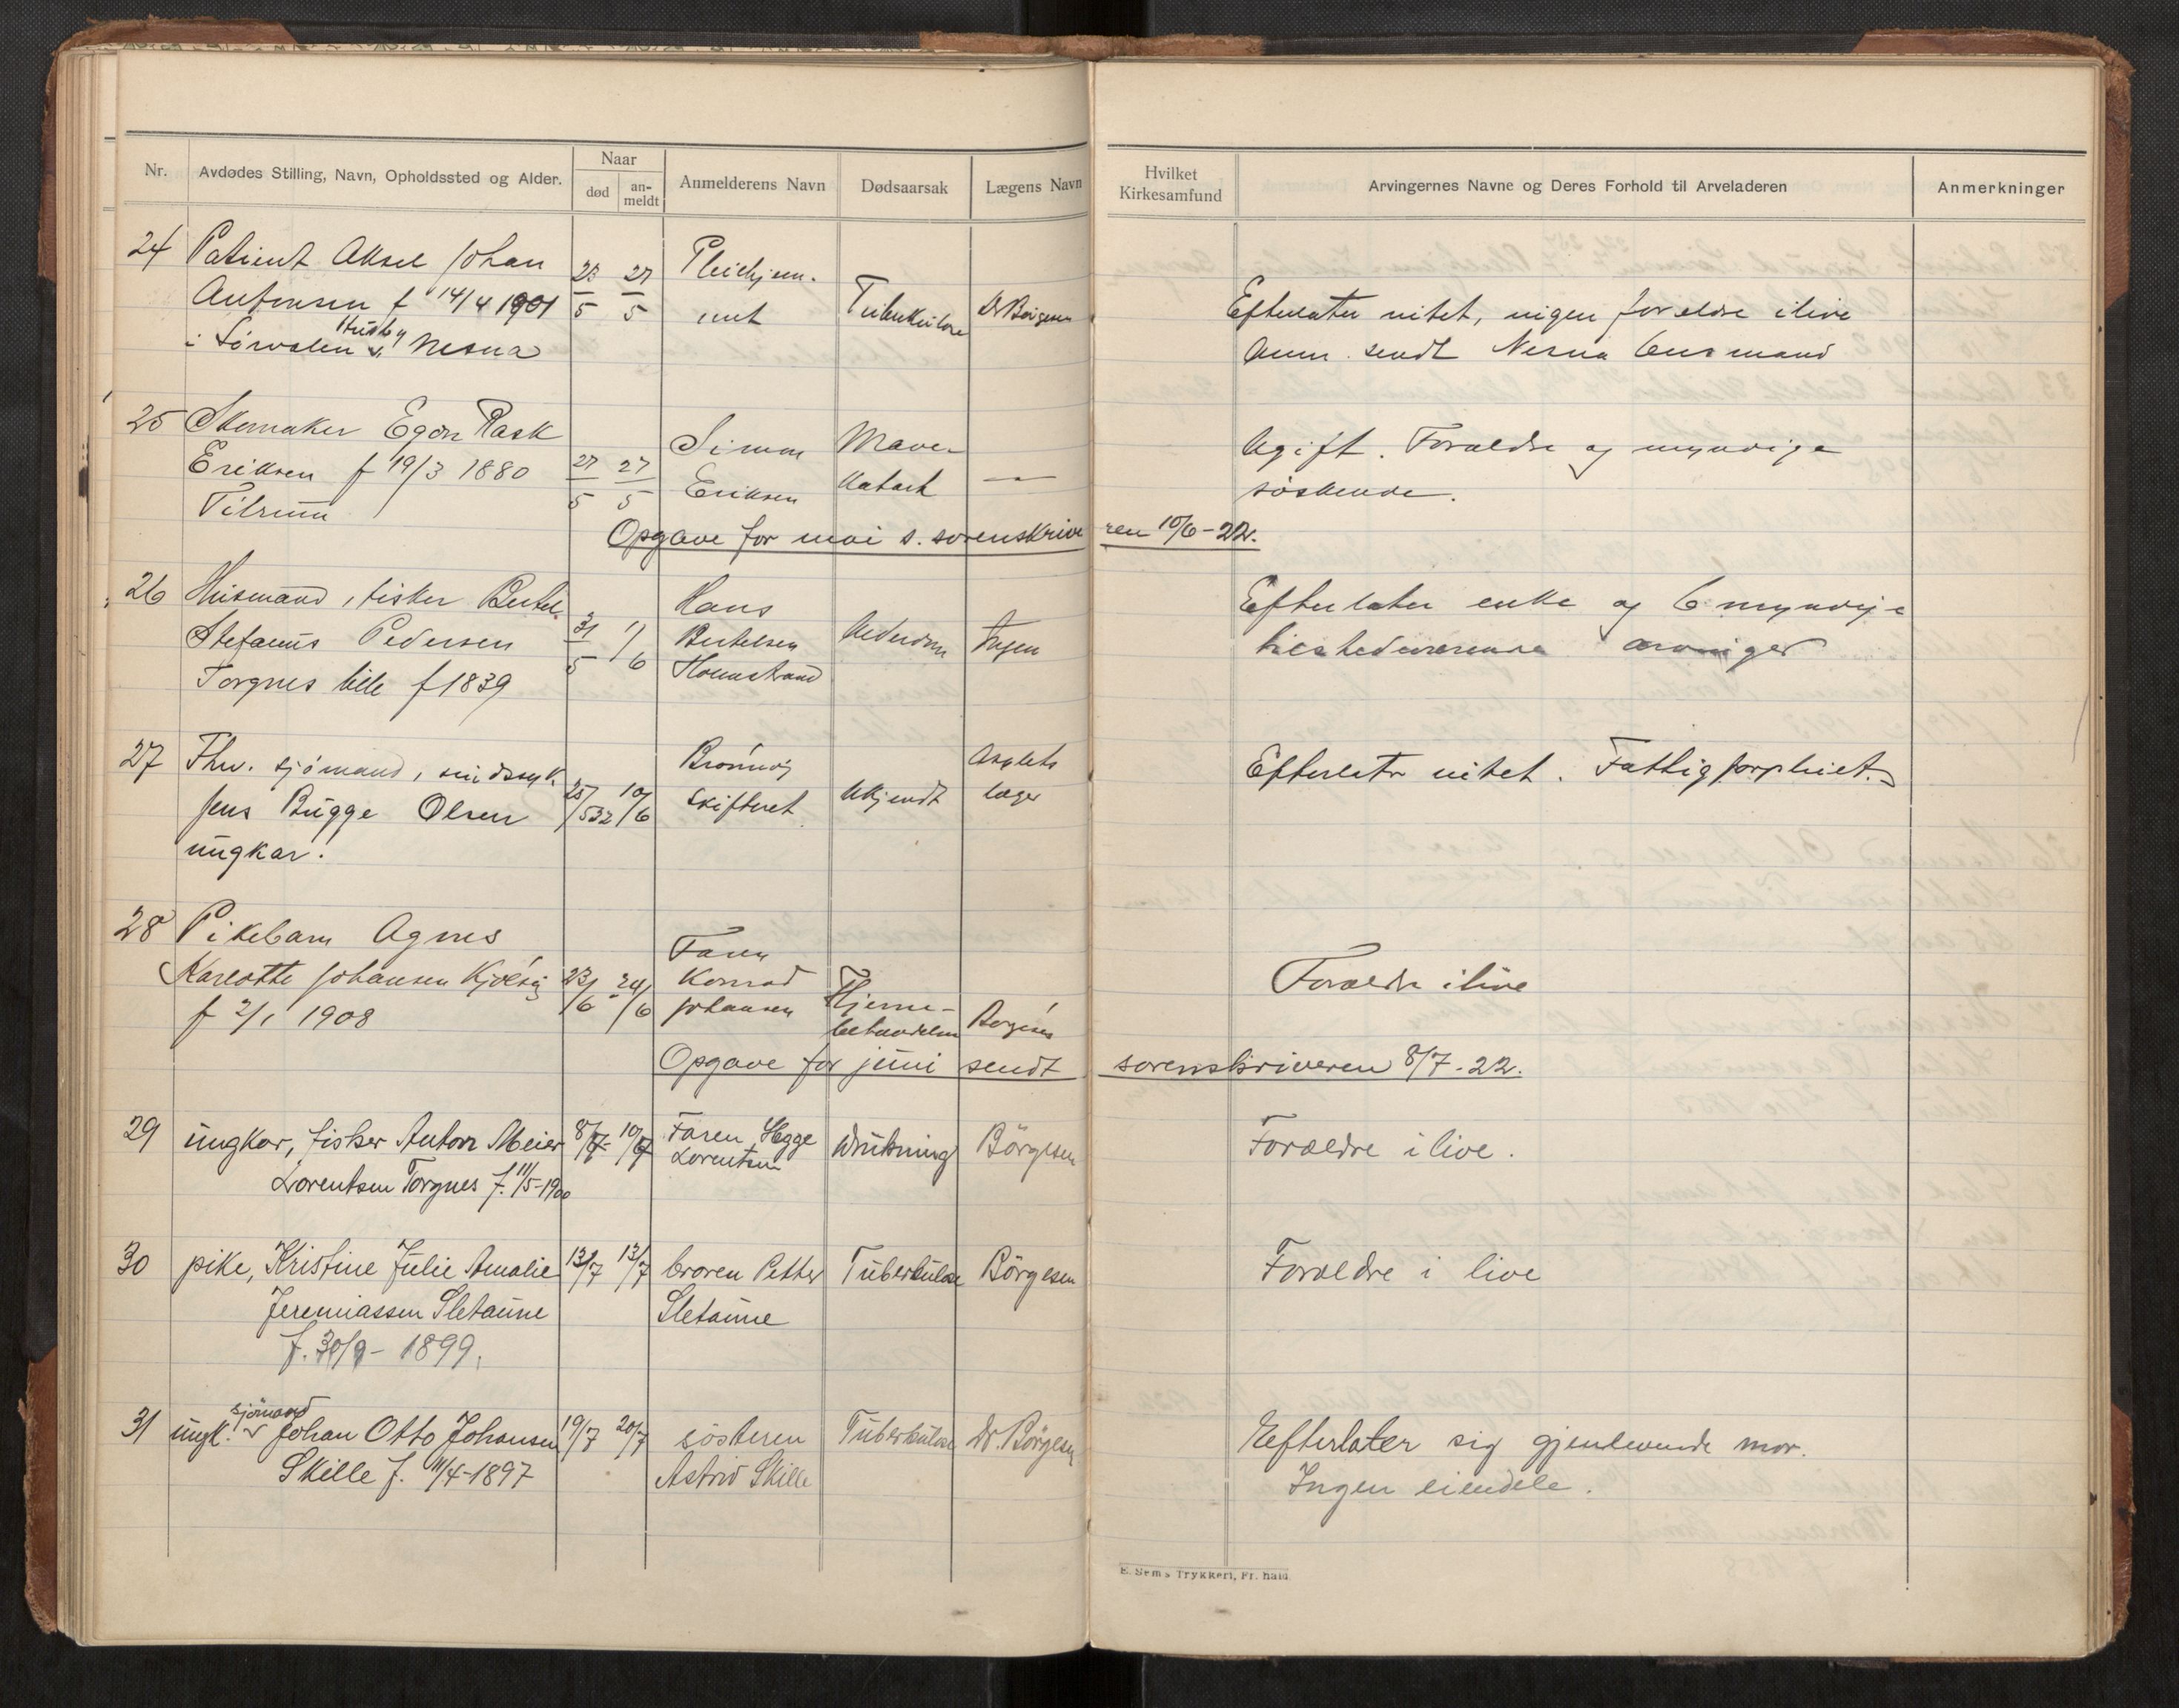 Nr.
Avdødes Stilling, Navn, Opholdssted og Alder.
Naar
død
an-
meldt
Anmelderens Navn
Dødsaarsak
Lægens Navn
Hvilket
Kirkesamfund
Arvingernes Navne og Deres Forhold til Arveladeren
Anmerkninger
24 Patient Aksel Johan
Antonsen f 14/4 1901
Husby
i Nesna
23/5 27/5
Pleiehjem-
met
Tuberkulose
Dr Börgesen
Efterlater intet, ingen forældre ilive
Anm. sendt Nesna lensmand
25 Skomaker Egon Rask
Eriksen f 19/3 1880
Tilrum
27/5 27/5
Simon
Eriksen
Mave-
katarh
—
Ugift. Forældre og myndige
søskende.
Opgave for mai s. sorenskrive ren 10/6-22.
26 Husmand, fisker Bertel
Stefanus Pedersen
Torgnes lille f 1839
31/5 1/6
Hans
Bertelsen
Holmstrand
Alderdom
Ingen
Efterlater enke og 6 myndige
tilstedeværende arvinger
27 Fhv. sjømand, sindssyk
Jens Bugge Olsen
ungkar.
25/5 10/6
Brønnøy
Skifteret
Ukjendt
Asylets
læge
Efterlater intet. Fattigforpleiet.
28 Pikebarn Agnes
Karlotte Johansen
f 2/1 1908
23/6 24/6
Faren
Konrad
Johansen
Hjerne-
betændelse
Börgesen
Forældre ilive
Opgave for juni sendt sorenskriveren 8/7-22.
29 ungkar, fisker Anton Meier
Lorentsen Torgnes f. 11/5-1900
8/7- 10/7
Faren Hegge
Lorentsen
Drukning
Börgesen
Forældre i live.
30 pike, Kristine Julie Amalie
Jeremiassen Sletaune
f. 30/9- 1899.
13/7 13/7
broren Petter
Sletaune
Tuberkulose
Börgesen
Forældre i live
sjömand
31 ungk. Johan Otto Johansen
Skille f. 11/4-1897
19/7 20/7
søsteren
Astrid Skille
Tuberkulose
Dr. Börgesen
Efterlater sig gjenlevende mor.
Ingen eiendele.
E. Sems Trykkeri, Fr. hald